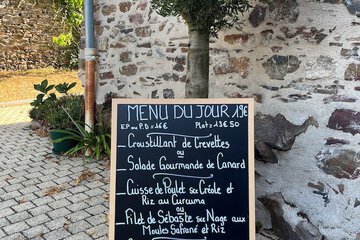 MENU DU JOUR 19€
EP ou P.D = 16€ Plat: 13€50
— Croustillant de Crevettes
ou
Salade Gourmande de Canard
— Cuisse de Poulet sce Créole et
Riz au Curcuma
ou
— Filet de Sébaste sce Nage aux
Moules Safrané et Riz